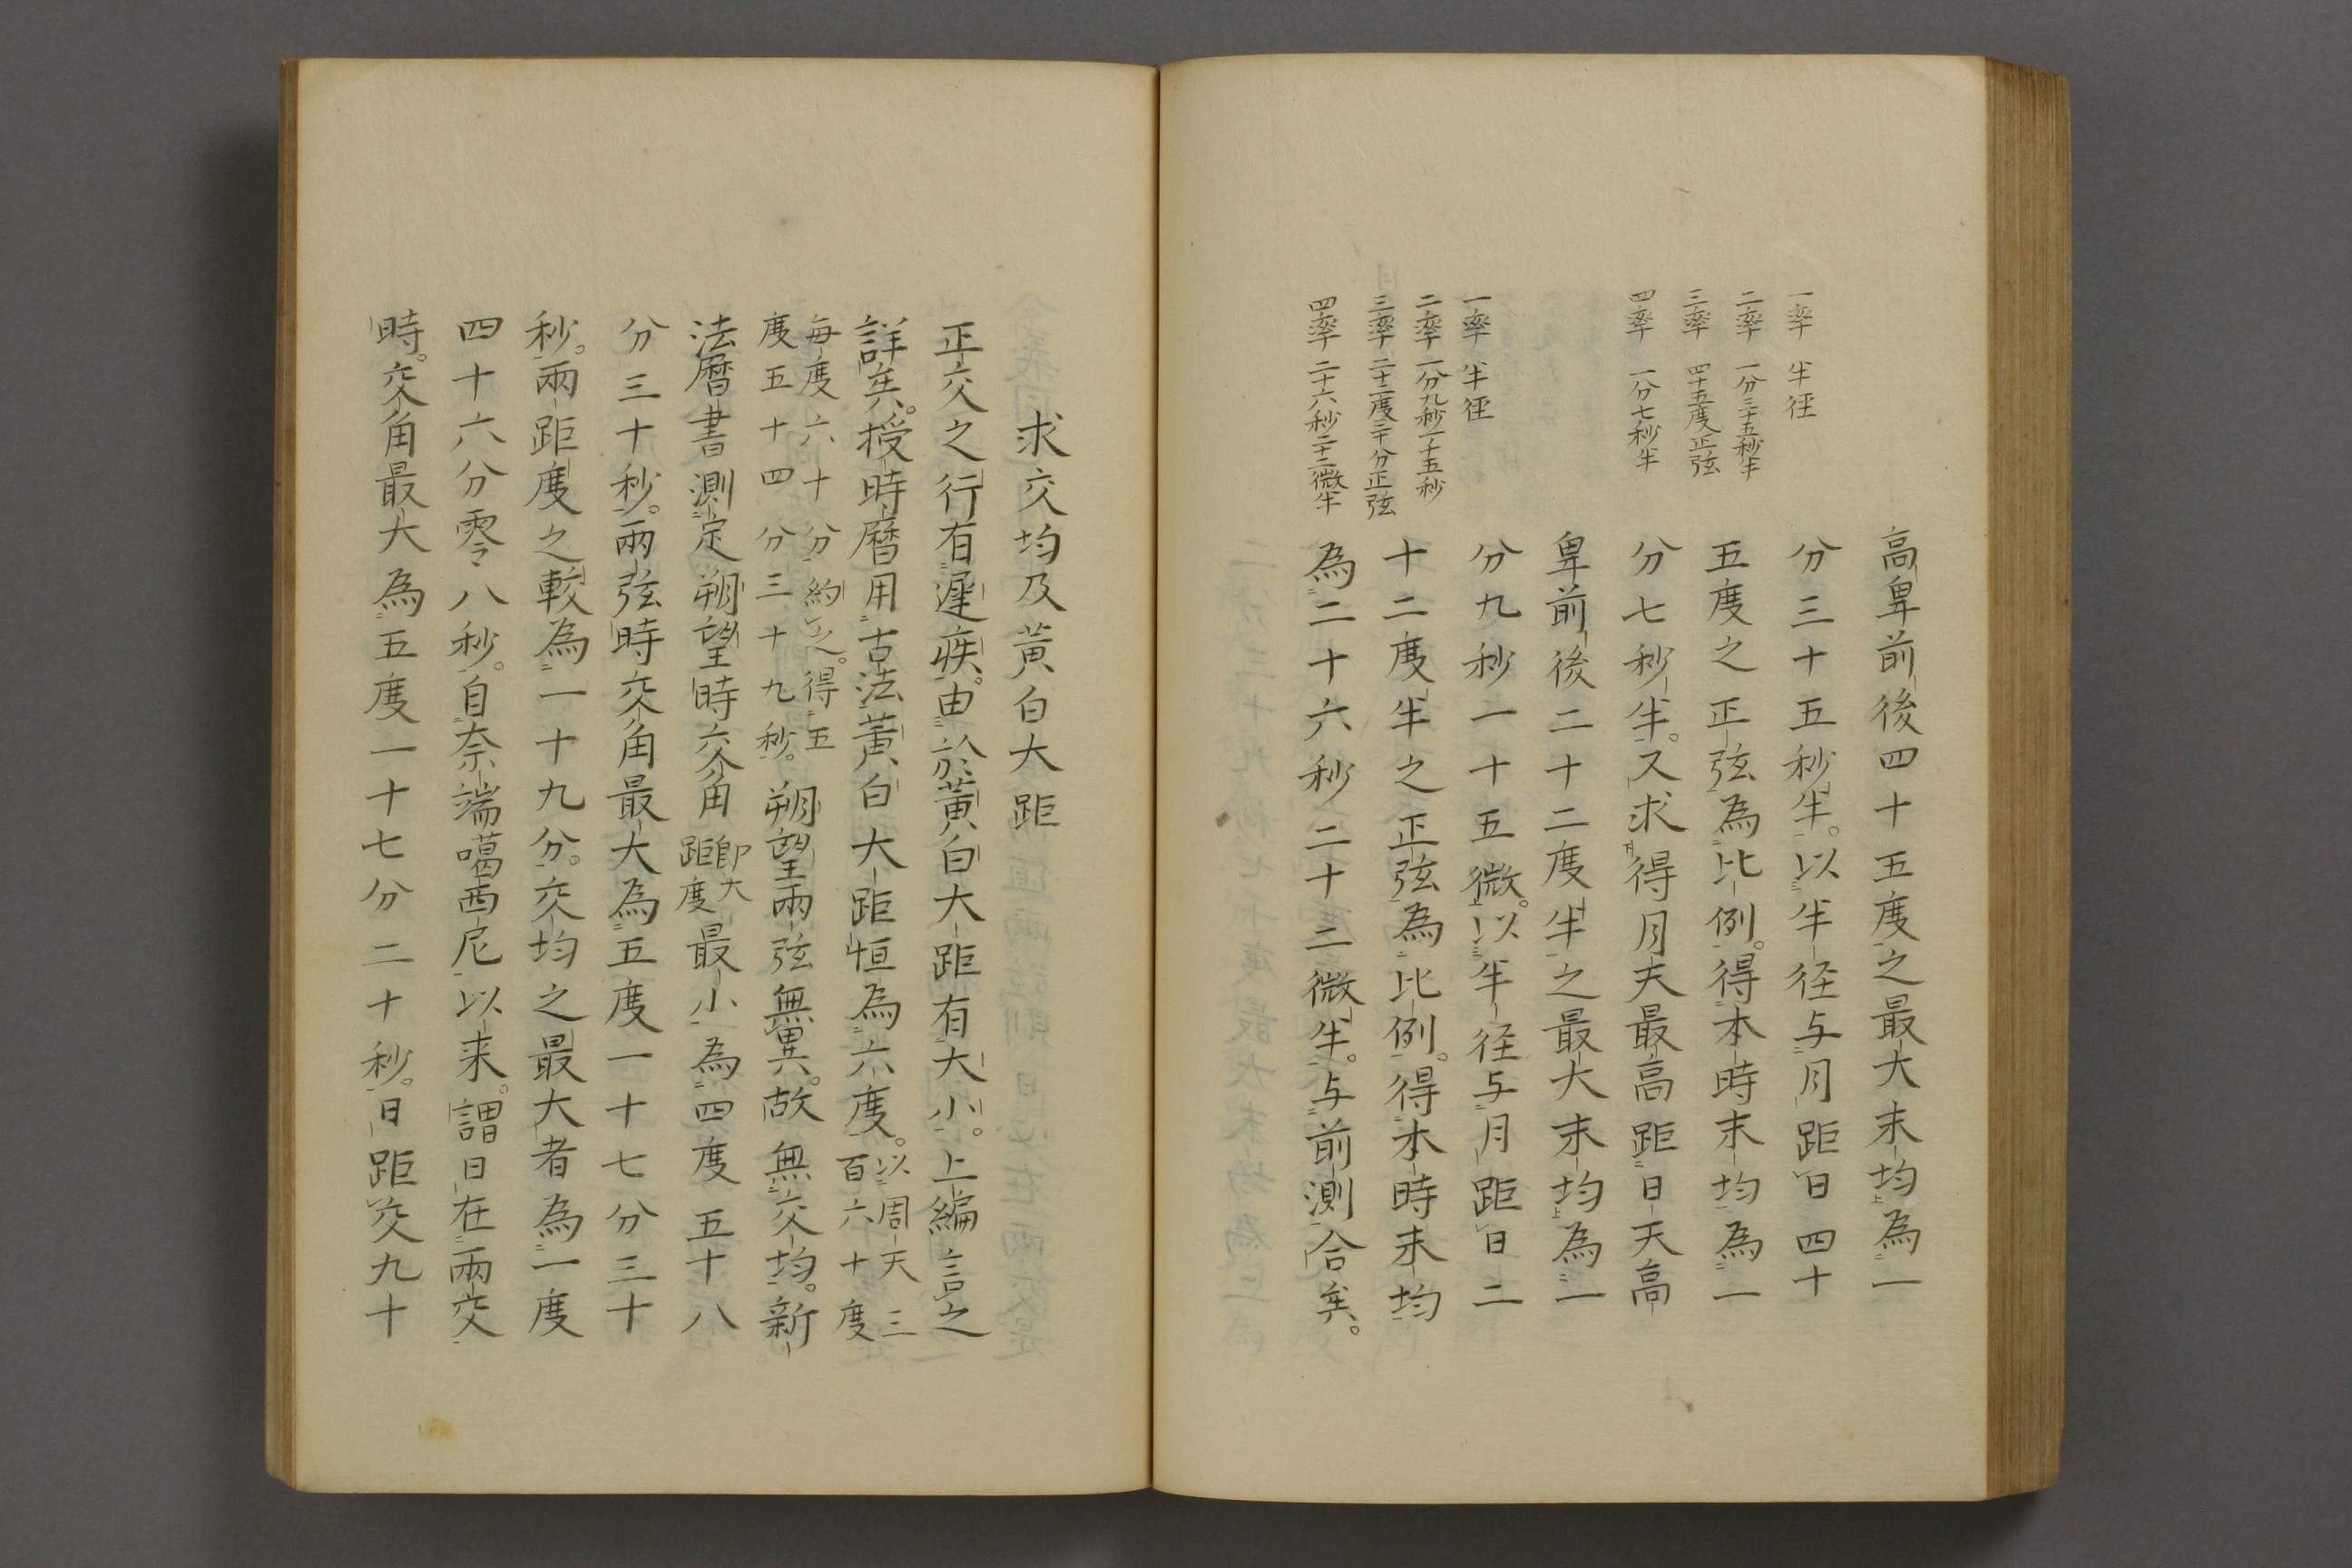 一率 半径
二率 一分三十五秒半
三率 四十五度正弦
四率 一分七秒半
一率 半径
二率 一分九秒一十五秒
三率 二十二度三十分正弦
四率 二十六秒二十二微半
高卑前後四十五度之最大末均為一
分三十五秒半。以半径与月距日四十
五度之正弦為比例。得本時末均為一
分七秒半。又求得月天最高距日天高
卑前後二十二度半之最大末均為一
分九秒一十五微。以半径与月距日二
十二度半之正弦為比例。得本時末均
為二十六秒二十二微半。与前測合矣。
求交均及黄白大距
正交之行有遲疾。由於黄白大距有大小。上編言之
詳矣。授時曆用古法黄白大距恒為六度。以周天三
百六十度
每度六十分約之。得五
度五十四分三十九秒。朔望兩弦無異。故無交均。新
法曆書測定朔望時交角即大
距度最小為四度五十八
分三十秒。兩弦時交角最大為五度一十七分三十
秒。兩距度之較為一十九分。交均之最大者為一度
四十六分零八秒。自奈端噶西尼以来。謂日在兩交
時。交角最大為五度一十七分二十秒。日距交九十